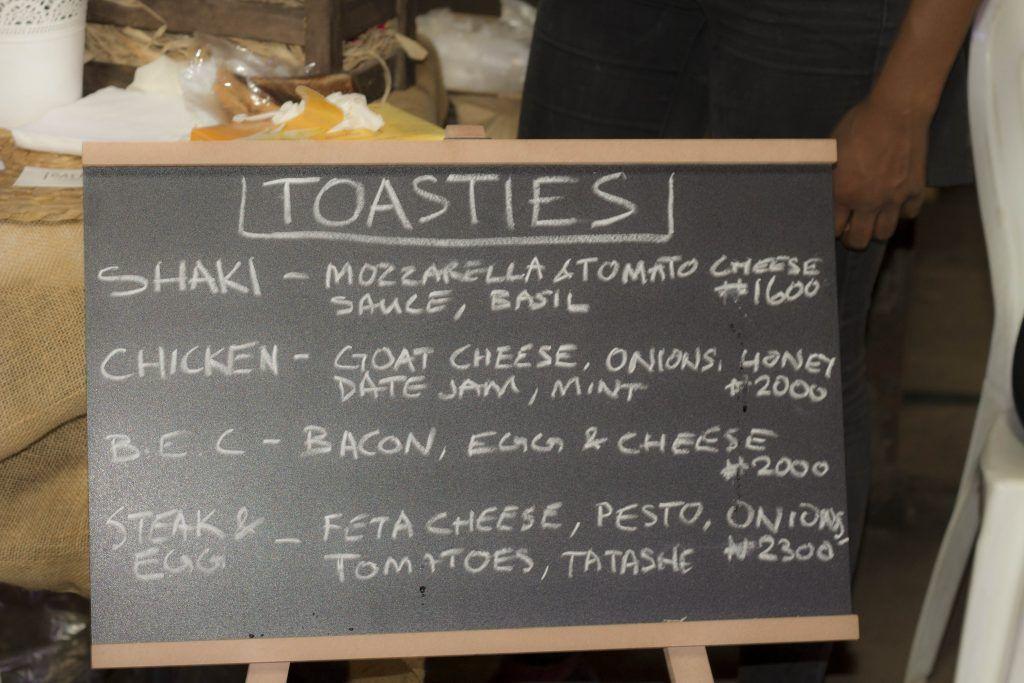 TOASTIES
SHAKI - MOZZARELLA & TOMATO CHEESE
SAUCE, BASIL ₦1600
CHICKEN - GOAT CHEESE, ONIONS, HONEY
DATE JAM, MINT ₦2000
B.E.C - BACON, EGG & CHEESE
₦2000
STEAK & EGG - FETA CHEESE, PESTO, ONIONS,
TOMATOES, TATASHE ₦2300